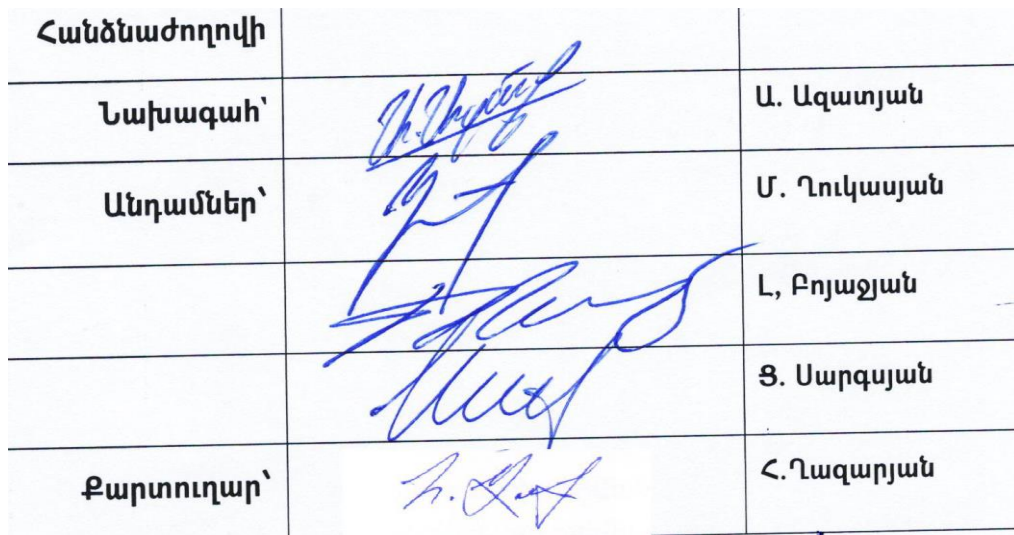 Հանձնաժողովի
Նախագահ՝ Ա. Ազատյան
Անդամներ՝ Մ. Ղուկասյան
Լ, Բոյաջյան
Ց. Սարգսյան
Քարտուղար՝ Հ.Ղազարյան